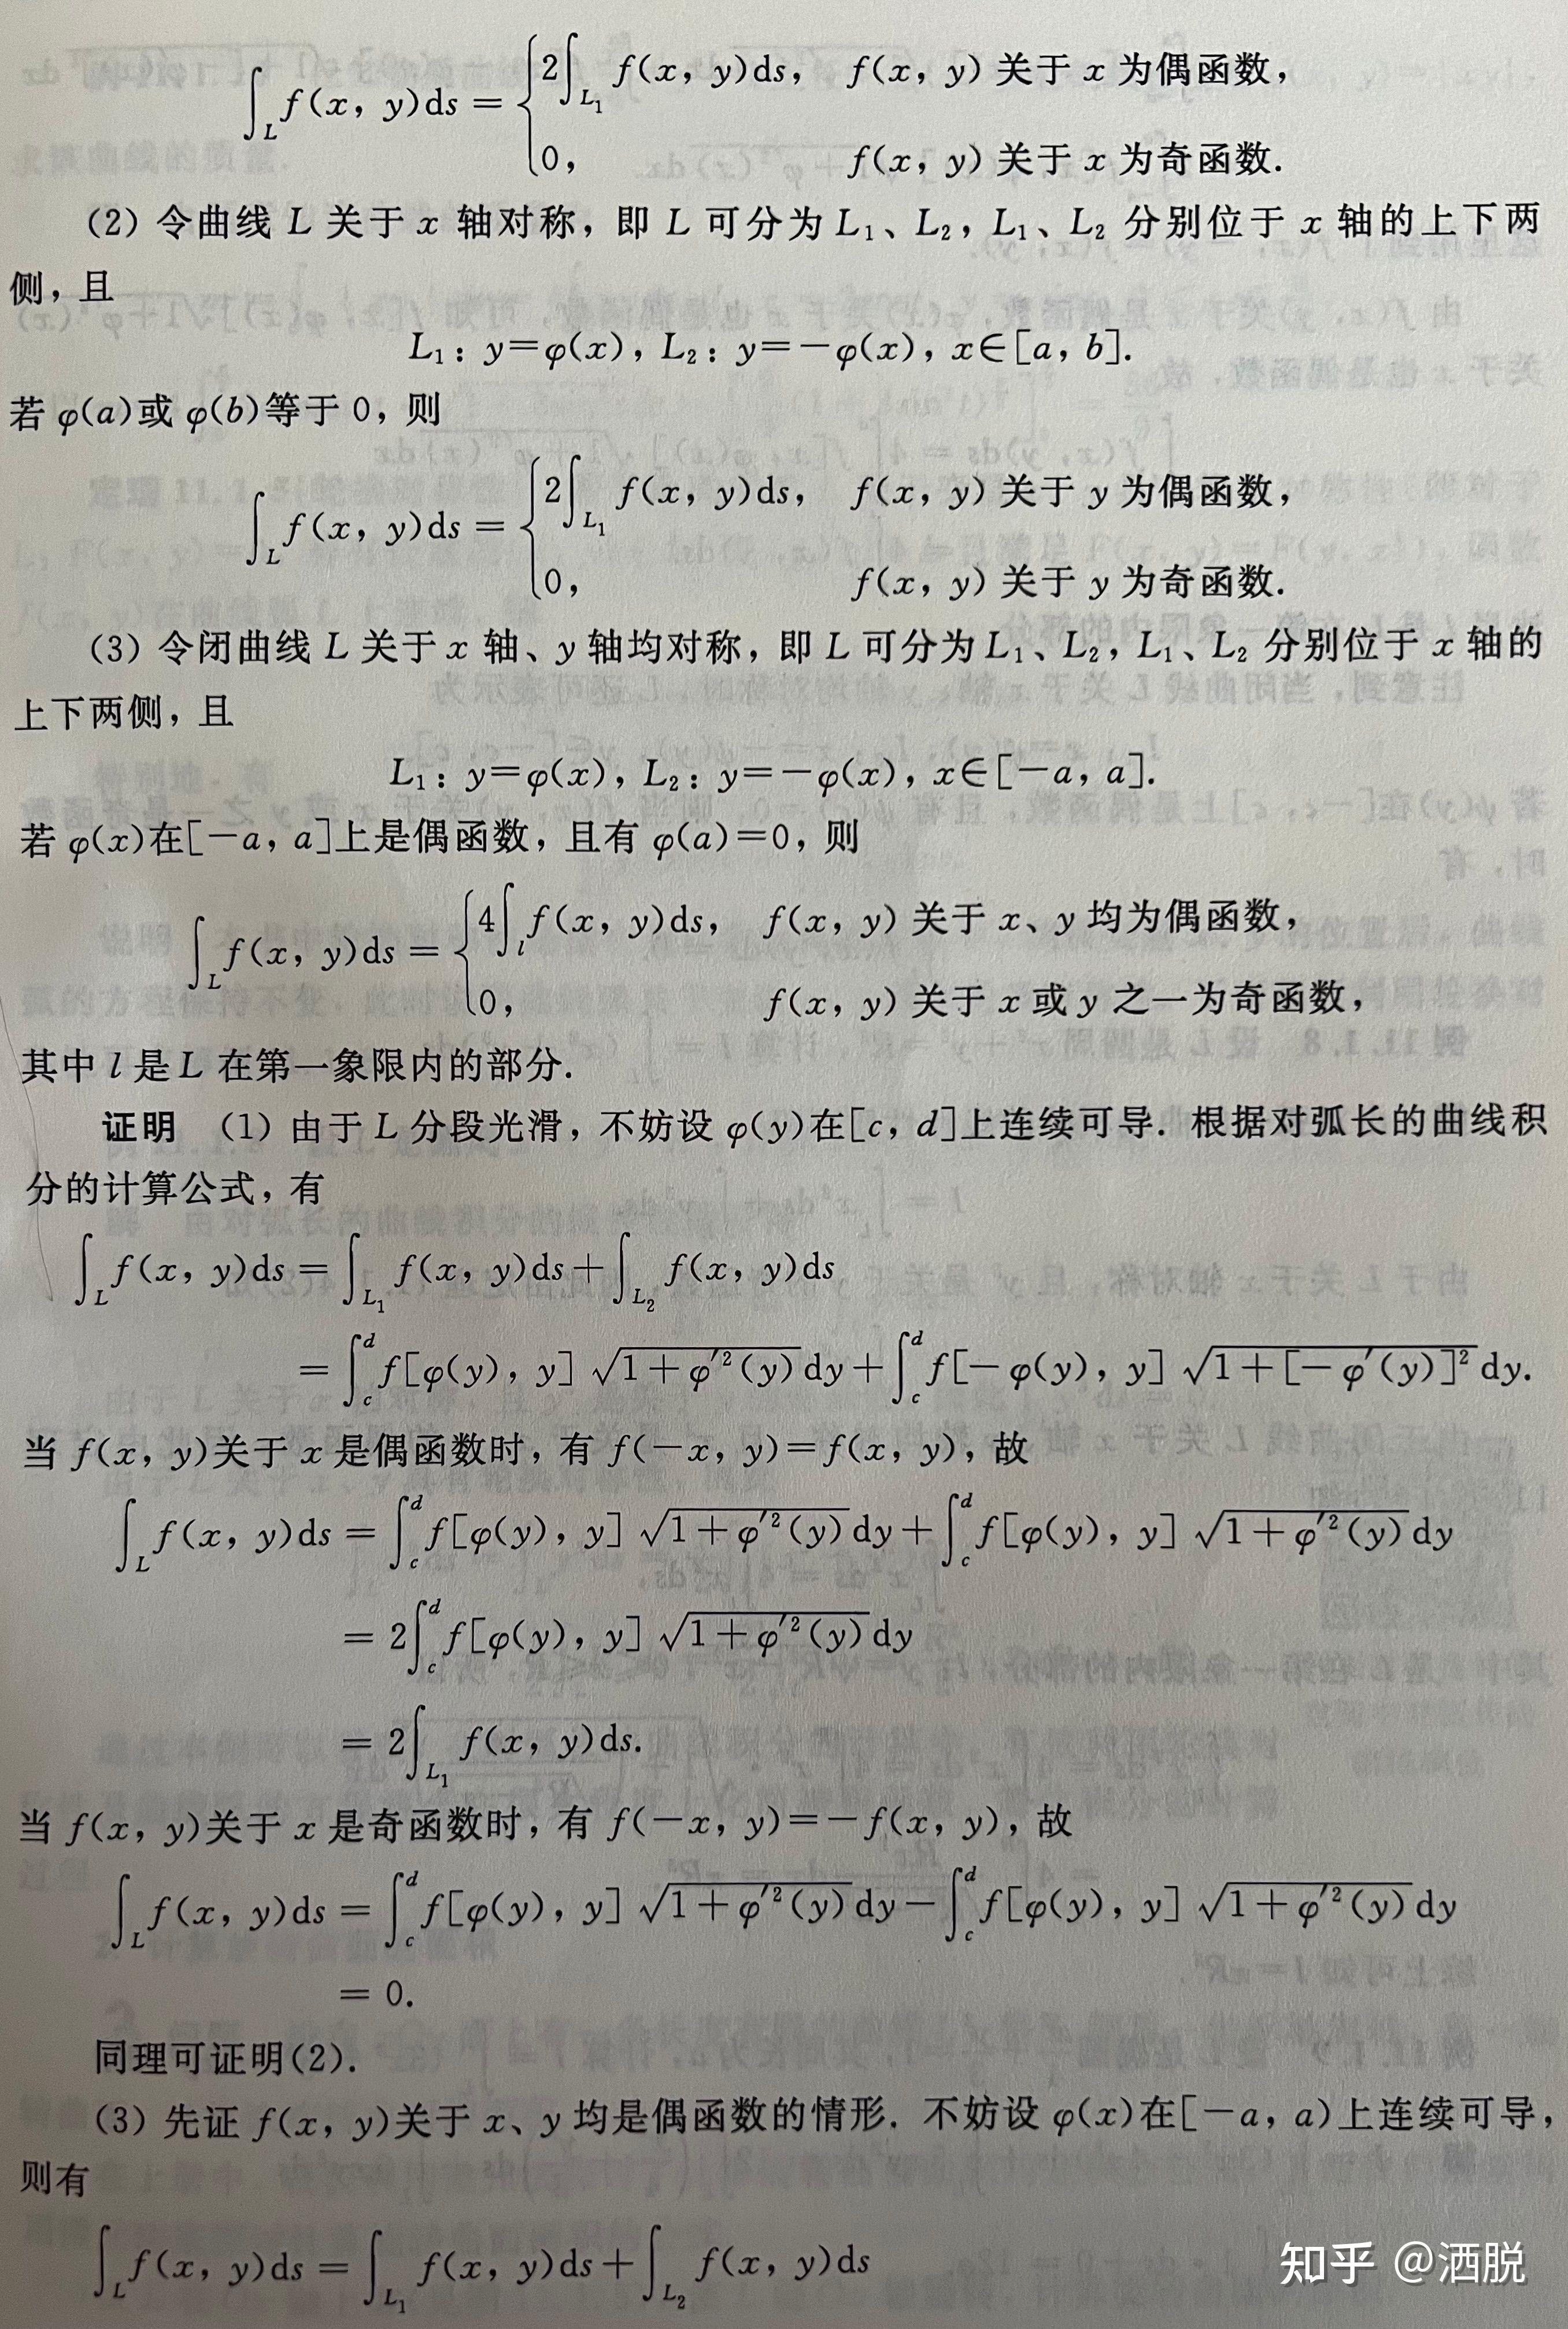 ∫_L f(x, y)ds = { 2∫_{L₁} f(x, y)ds, f(x, y) 关于 x 为偶函数,
0, f(x, y) 关于 x 为奇函数.
(2) 令曲线 L 关于 x 轴对称, 即 L 可分为 L₁、L₂, L₁、L₂ 分别位于 x 轴的上下两
侧, 且
L₁: y=φ(x), L₂: y=-φ(x), x∈[a, b].
若 φ(a)或 φ(b)等于 0, 则
∫_L f(x, y)ds = { 2∫_{L₁} f(x, y)ds, f(x, y) 关于 y 为偶函数,
0, f(x, y) 关于 y 为奇函数.
(3) 令闭曲线 L 关于 x 轴、y 轴均对称, 即 L 可分为 L₁、L₂, L₁、L₂ 分别位于 x 轴的
上下两侧, 且
L₁: y=φ(x), L₂: y=-φ(x), x∈[-a, a].
若 φ(x)在[-a, a]上是偶函数, 且有 φ(a)=0, 则
∫_L f(x, y)ds = { 4∫_l f(x, y)ds, f(x, y) 关于 x、y 均为偶函数,
0, f(x, y) 关于 x 或 y 之一为奇函数,
其中 l 是 L 在第一象限内的部分.
证明 (1) 由于 L 分段光滑, 不妨设 φ(y)在[c, d]上连续可导. 根据对弧长的曲线积
分的计算公式, 有
∫_L f(x, y)ds = ∫_{L₁} f(x, y)ds + ∫_{L₂} f(x, y)ds
= ∫_c^d f[φ(y), y] √(1+φ′²(y)) dy + ∫_c^d f[-φ(y), y] √(1+[-φ′(y)]²) dy.
当 f(x, y)关于 x 是偶函数时, 有 f(-x, y)=f(x, y), 故
∫_L f(x, y)ds = ∫_c^d f[φ(y), y] √(1+φ′²(y)) dy + ∫_c^d f[φ(y), y] √(1+φ′²(y)) dy
= 2∫_c^d f[φ(y), y] √(1+φ′²(y)) dy
= 2∫_{L₁} f(x, y)ds.
当 f(x, y)关于 x 是奇函数时, 有 f(-x, y)=-f(x, y), 故
∫_L f(x, y)ds = ∫_c^d f[φ(y), y] √(1+φ′²(y)) dy - ∫_c^d f[φ(y), y] √(1+φ′²(y)) dy
= 0.
同理可证明(2).
(3) 先证 f(x, y)关于 x、y 均是偶函数的情形. 不妨设 φ(x)在[-a, a)上连续可导,
则有
∫_L f(x, y)ds = ∫_{L₁} f(x, y)ds + ∫_{L₂} f(x, y)ds
知乎 @洒脱